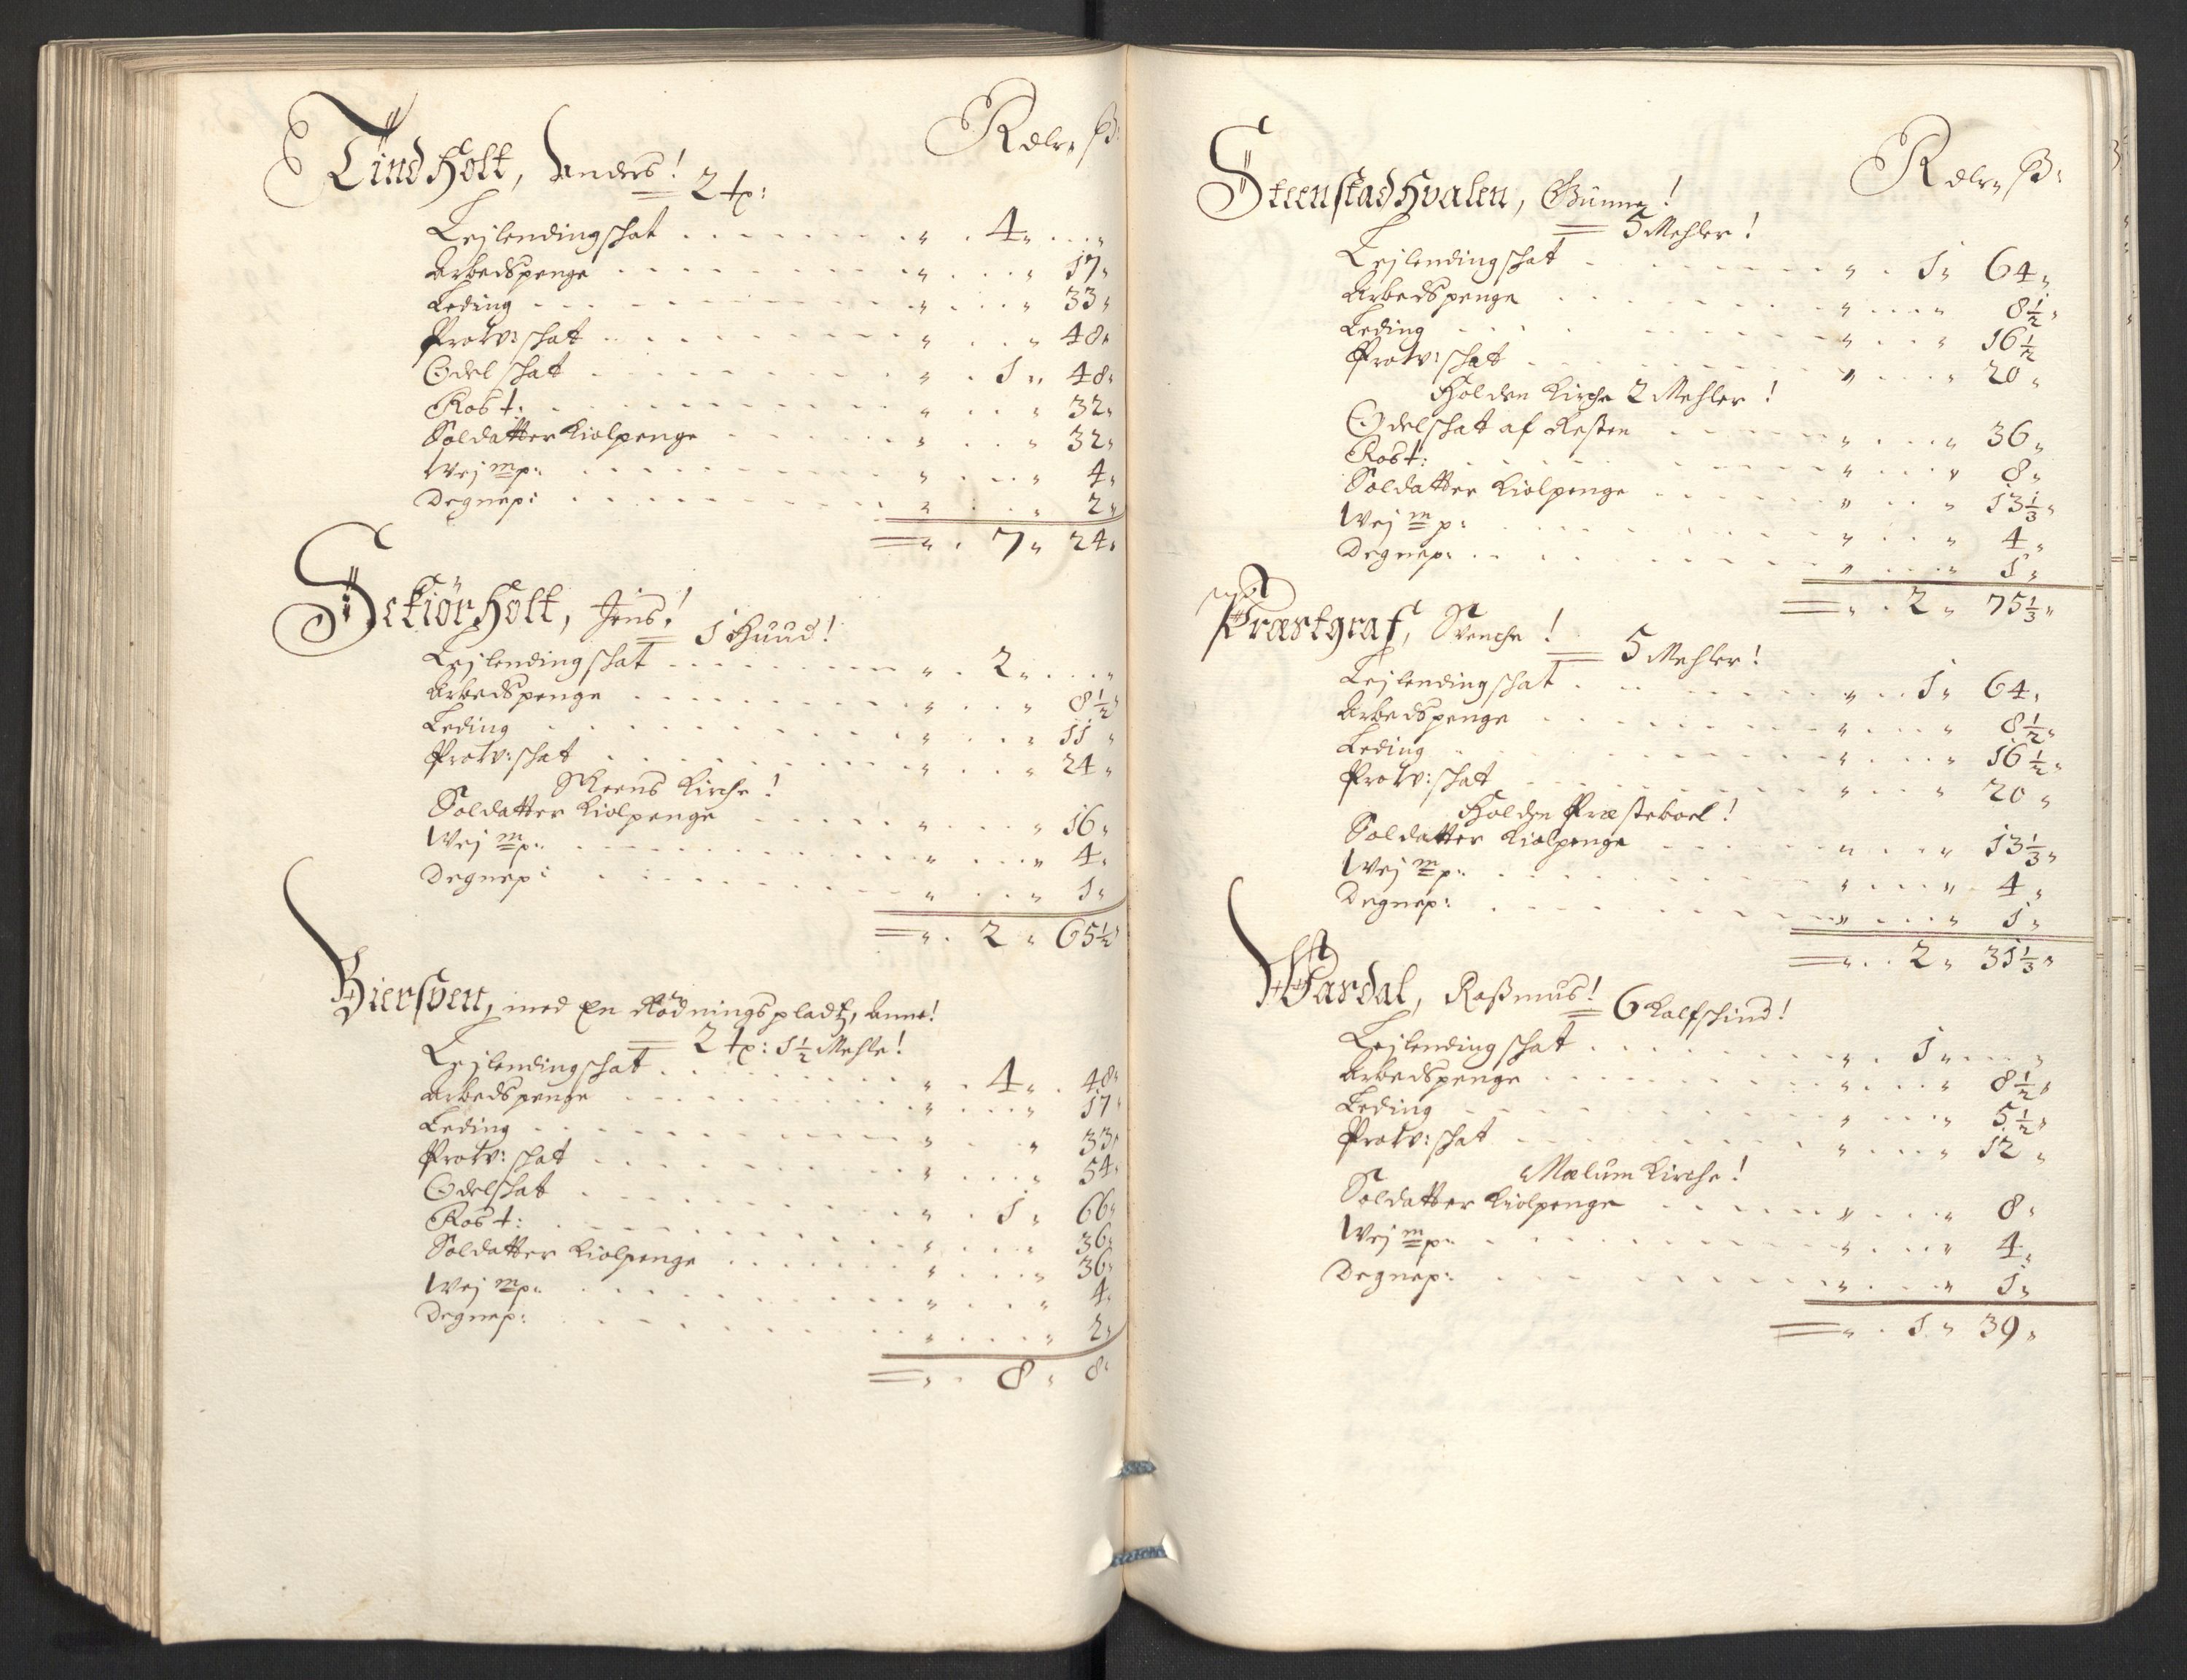 Rdlr, ß:
Tindholt, Anders!
2 tp:
Lejlendingschat . . . . . . . „ . 4„ . . . „
Arbedspenge . . . . . . . „ . . . „ 17„
Leding . . . . . . . „ . . . „ 33„
Prow: schat . . . . . . . „ . . . „ 48„
Odelschat . . . . . . . „ . 1„ 48„
Rost: . . . . . . . „ . . . „ 32„
Soldatter Kiolpenge . . . . „ . . . „ 32„
Wej mp: . . . . . . . „ . . . „ 4„
Degnep: . . . . . . . „ . . . „ 2„
= „ . 7„ 24„
Sekiørholt, Jens!
= 1 Huud!
Lejlendingschat . . . . . . . „ . 2„ . . . „
Arbedspenge . . . . . . . „ . . . „ 8½„
Leding . . . . . . . „ . . . „ 11„
Prow: schat . . . . . . . „ . . . „ 24„
Skeens Kirche!
Soldatter Kiolpenge . . . . „ . . . „ 16„
Wej mp: . . . . . . . „ . . . „ 4„
Degnep: . . . . . . . „ . . . „ 1„
= „ . 2„ 65½„
Biersven, med En Rødningspladtz, Anne!
= 2 tp: 1½ Mehle!
Lejlendingschat . . . . . . . „ . 4„ . 48„
Arbedspenge . . . . . . . „ . . . „ 17„
Leding . . . . . . . „ . . . „ 33„
Prow: schat . . . . . . . „ . . . „ 54„
Odelschat . . . . . . . „ . 1„ 66„
Rost: . . . . . . . „ . . . „ 36„
Soldatter Kiolpenge . . . . „ . . . „ 36„
Wej mp: . . . . . . . „ . . . „ 4„
Degnep: . . . . . . . „ . . . „ 2„
= „ . 8„ 8„
Rdlr, ß:
Steenstadhvalen, Gunne!
= 5 Mehler!
Lejlendingschat . . . . . . . „ . 1„ 64„
Arbedspenge . . . . . . . „ . . . „ 8½„
Leding . . . . . . . „ . . . „ 16½
Prow: schat . . . . . . . „ . . . „ 20„
Holden Kirche 2 Mehler!
Odelschat af Resten . . . . „ . . . „ 36„
Rost: . . . . . . . „ . . . „ 8„
Soldatter Kiolpenge . . . . „ . . . „ 13⅓„
Wej mp: . . . . . . . „ . . . „ 4„
Degnep: . . . . . . . „ . . . „ 1„
= „ . 2„ 75⅓„
Præstgraf, Svenche!
= 5 Mehler!
Lejlendingschat . . . . . . . „ . . 1„ 64„
Arbedspenge . . . . . . . „ . . . „ 8½„
Leding . . . . . . . „ . . . „ 16½„
Prow: schat . . . . . . . „ . . . „ 20„
Holden Præsteboel!
Soldatter Kiolpenge . . . . „ . . . „ 13⅓„
Wej mp: . . . . . . . „ . . . „ 4„
Degnep: . . . . . . . „ . . . „ 1„
= „ . . 2„ 31⅓„
Wardal, Raßmus!
= 6 Kalfschind!
Lejlendingschat . . . . . . . „ . 1„ . . . „
Arbedspenge . . . . . . . „ . . . „ 8½„
Leding . . . . . . . „ . . . „ 5½„
Prow: schat . . . . . . . „ . . . „ 12„
Mælum Kirche!
Soldatter Kiolpenge . . . . „ . . . „ 8„
Wej mp: . . . . . . . „ . . . „ 4„
Degnep: . . . . . . . „ . . . „ 1„
= „ . 1„ 39„